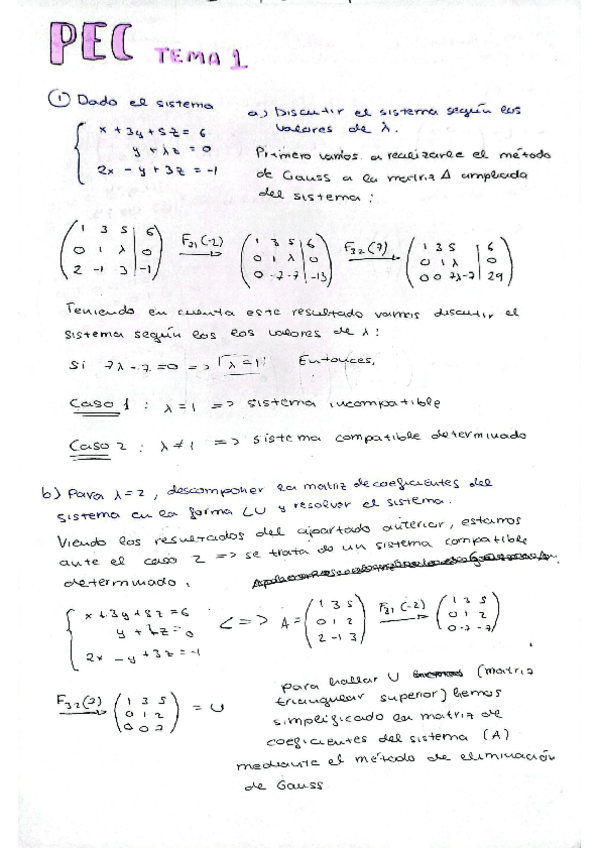 PEC TEMA 1
① Dado el sistema
x + 3y + 5z = 6
y + λz = 0
2x - y + 3z = -1
a) Discutir el sistema según los
valores de λ.
Primero vamos a realizarle el método
de Gauss a la matriz A ampliada
del sistema:
( 1 3 5 | 6 ) F21(-2) → ( 1 3 5 | 6 ) F32(7) → ( 1 3 5 | 6 )
( 0 1 λ | 0 ) ( 0 1 λ | 0 ) ( 0 1 λ | 0 )
( 2 -1 3 | -1 ) ( 0 -7 -7 | -13 ) ( 0 0 7λ-7 | 29 )
Teniendo en cuenta este resultado vamos discutir el
sistema según los los valores de λ:
Si 7λ - 7 = 0 => λ = 1; Entonces,
Caso 1 : λ = 1 => sistema incompatible
Caso 2 : λ ≠ 1 => sistema compatible determinado
b) Para λ = 2, descomponer la matriz de coeficientes del
sistema en la forma LU y resolver el sistema.
Viendo los resultados del apartado anterior, estamos
ante el caso 2 => se trata de un sistema compatible
determinado.
x + 3y + 5z = 6
y + 2z = 0
2x - y + 3z = -1
<=> A = ( 1 3 5 ) F21(-2) → ( 1 3 5 )
( 0 1 2 ) ( 0 1 2 )
( 2 -1 3 ) ( 0 -7 -7 )
F32(7) → ( 1 3 5 ) = U
( 0 1 2 )
( 0 0 7 )
Para hallar U (matriz
triangular superior) hemos
simplificado la matriz de
coeficientes del sistema (A)
mediante el método de eliminación
de Gauss